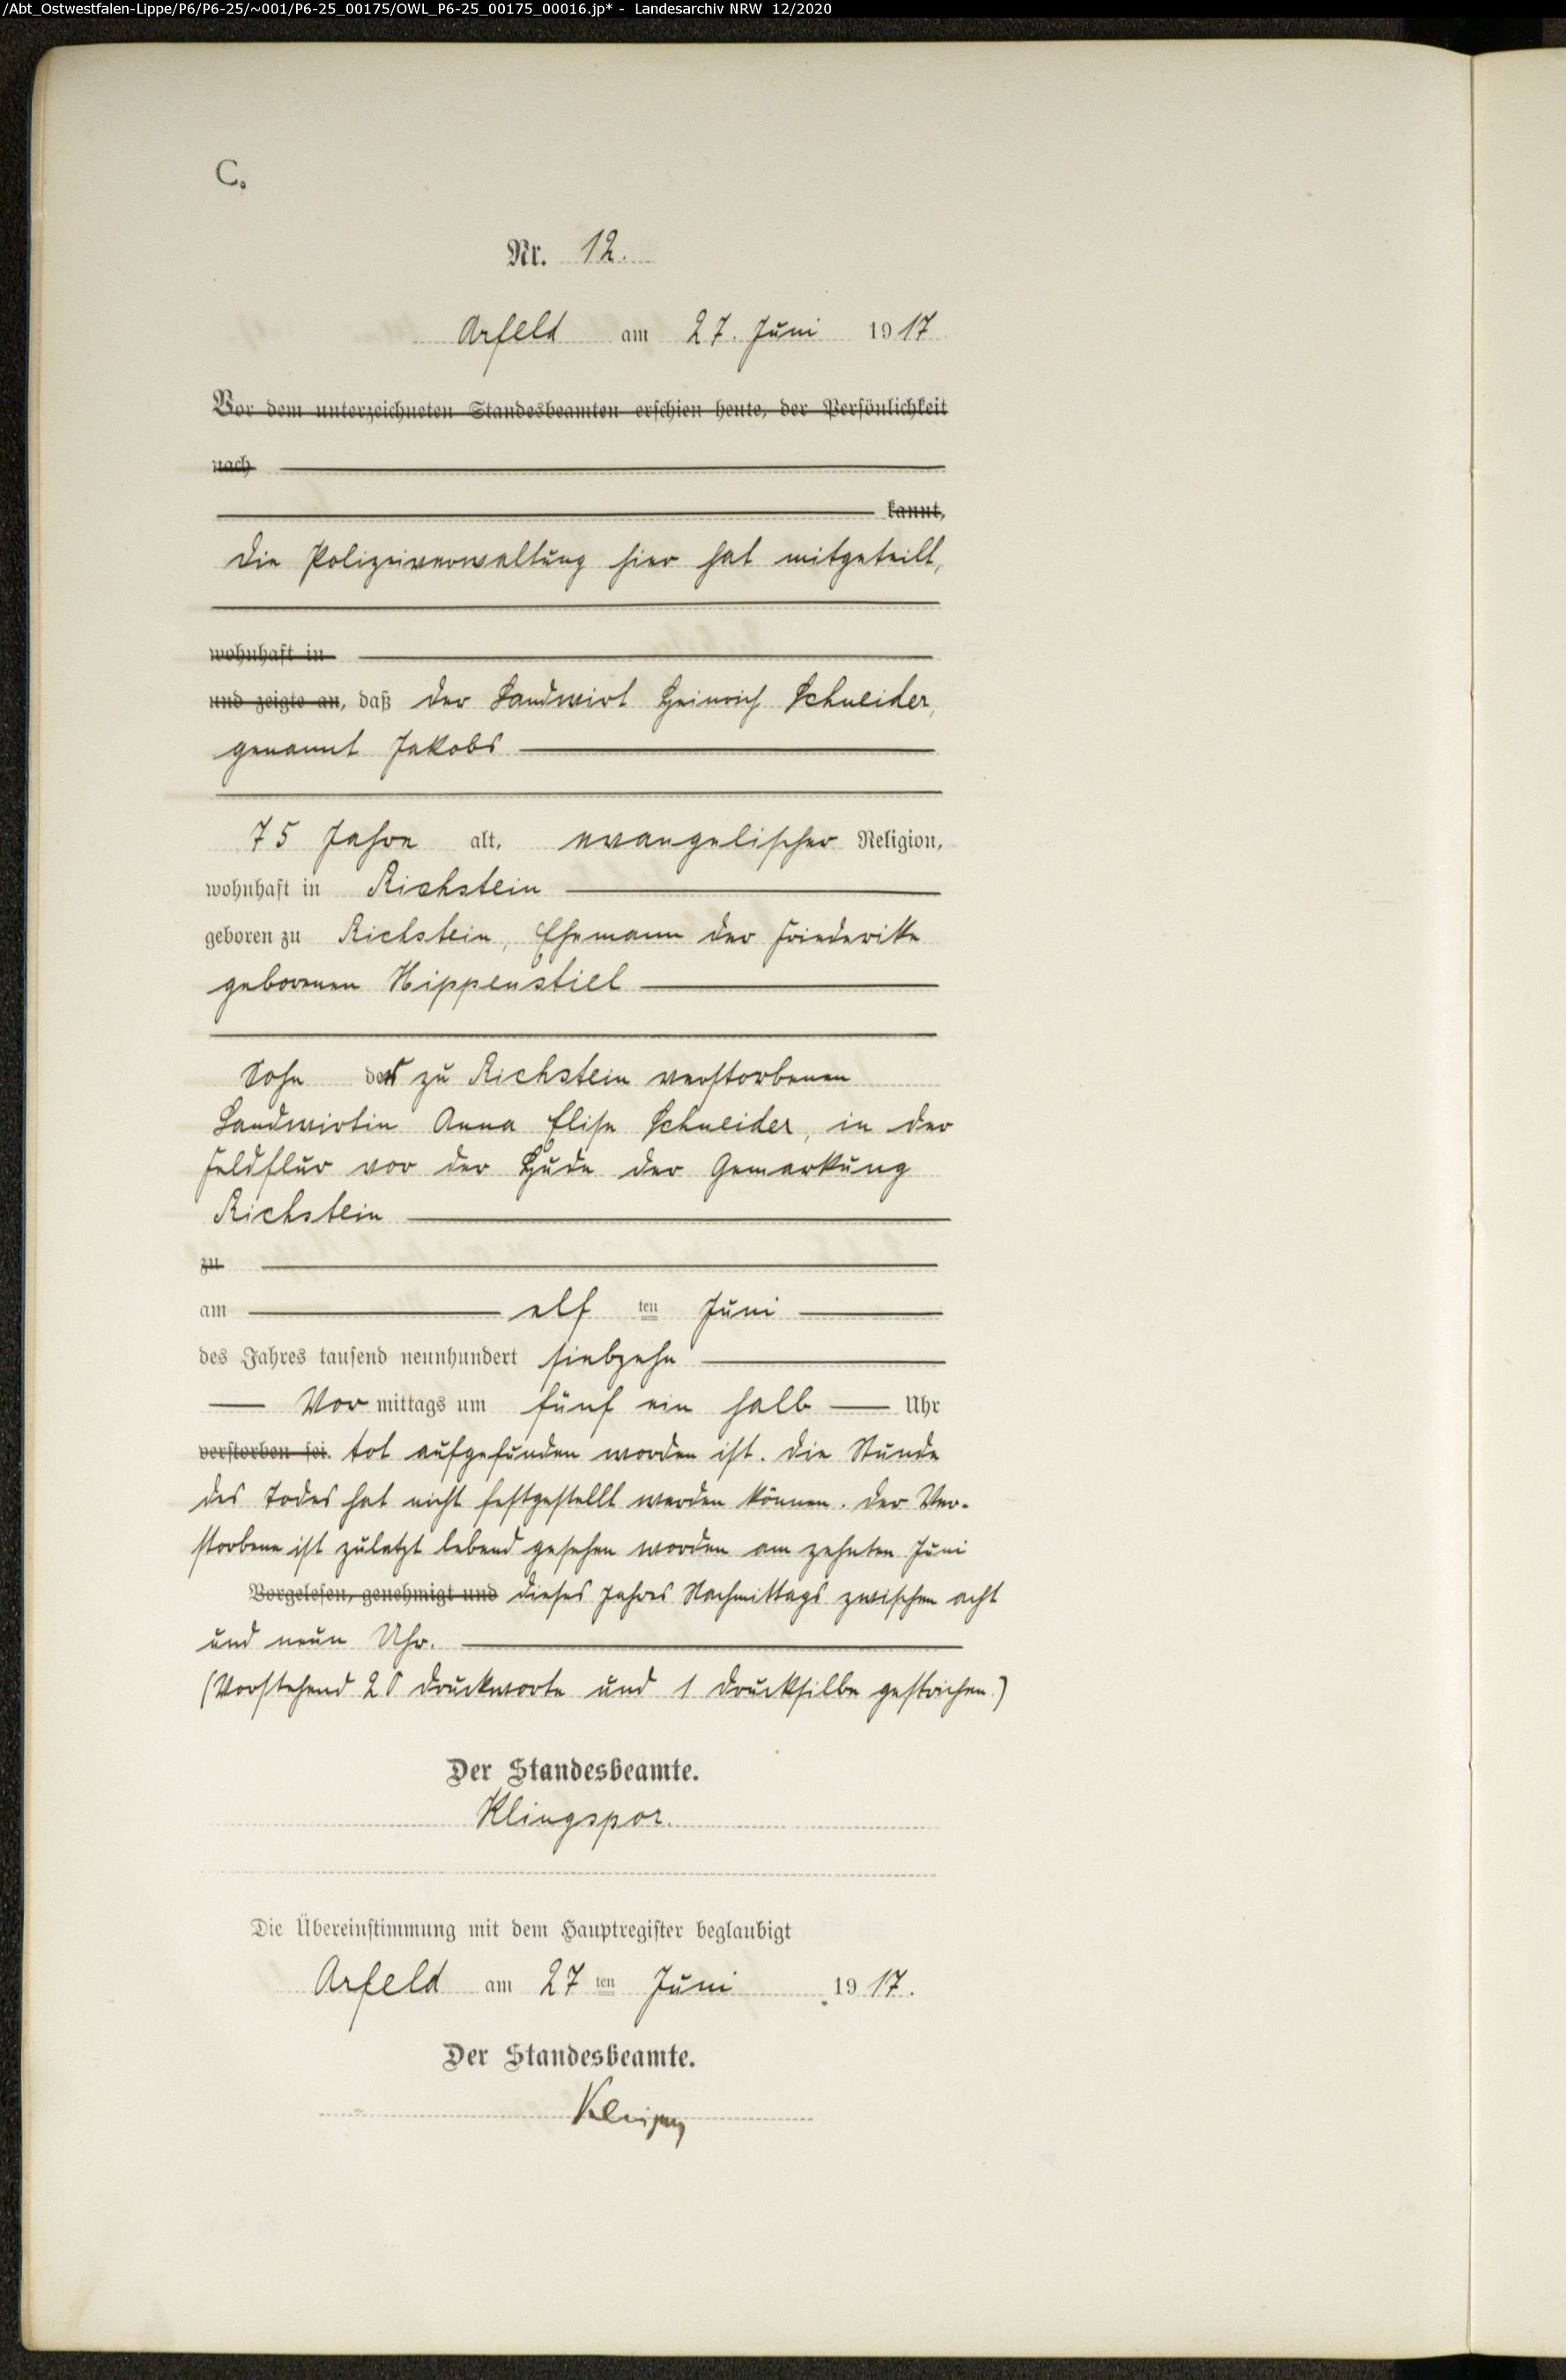 /Abt_Ostwestfalen-Lippe/P6/P6-25/~001/P6-25_00175/OWL_P6-25_00175_00016.jp* - Landesarchiv NRW 12/2020
C.
Nr. 12.
Arfeld am 27. Juni 1917
Vor dem unterzeichneten Standesbeamten erschien heute, der Persönlichkeit
nach
kannt,
die Polizeiverwaltung hier hat mitgeteilt,
wohnhaft in
und zeigte an, daß der Landwirt Heinrich Schneider,
genannt Jakobs
75 Jahre alt, evangelischer Religion,
wohnhaft in Richstein
geboren zu Richstein, Ehemann der Friederike
geborenen Hippenstiel
Sohn der zu Richstein verstorbenen
Landwirtin Anna Elise Schneider, in der
Feldflur vor der Hude der Gemarkung
Richstein
zu
am elf ten Juni
des Jahres tausend neunhundert siebzehn
Vormittags um fünf ein halb Uhr
verstorben sei. tot aufgefunden worden ist. Die Stunde
des Todes hat nicht festgestellt werden können. Der Ver-
storbene ist zuletzt lebend gesehen worden am zehnten Juni
Vorgelesen, genehmigt und dieses Jahres Nachmittags zwischen acht
und neun Uhr.
(Vorstehend 20 Druckworte und 1 Drucksilbe gestrichen.)
Der Standesbeamte.
Klingspor.
Die Übereinstimmung mit dem Hauptregister beglaubigt
Arfeld am 27 ten Juni 1917.
Der Standesbeamte.